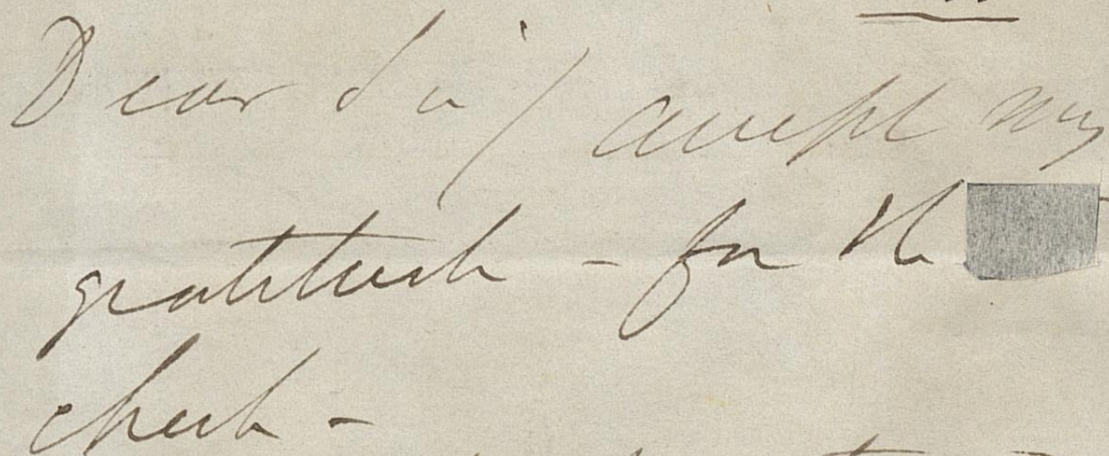 Dear Sir / accept my
gratitude - for the
check -